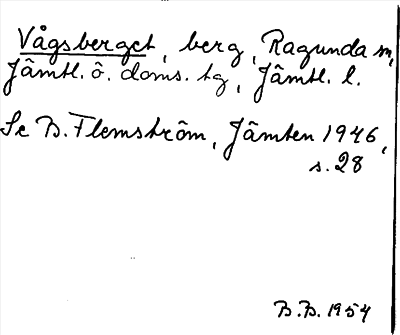 Vågsberget, berg, Ragunda sn,
Jämtl. ö. doms. tg, Jämtl. l.
Se B. Flemström, Jämten 1946,
s. 28
B.B. 1954